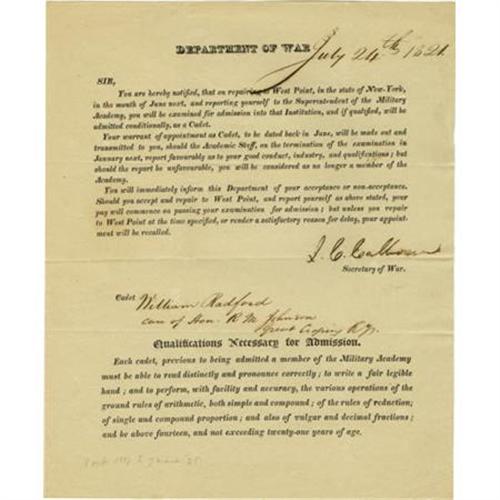 DEPARTMENT OF WAR, July 24th 1821.
SIR,
You are hereby notified, that on repairing to West Point, in the state of New-York,
in the month of June next, and reporting yourself to the Superintendent of the Military
Academy, you will be examined for admission into that Institution, and if qualified, will be
admitted conditionally, as a Cadet.
Your warrant of appointment as Cadet, to be dated back in June, will be made out and
transmitted to you, should the Academic Staff, on the termination of the examination in
January next, report favourably as to your good conduct, industry, and qualifications; but
should the report be unfavourable, you will be considered as no longer a member of the
Academy.
You will immediately inform this Department of your acceptance or non-acceptance.
Should you accept and repair to West Point, and report yourself as above stated, your
pay will commence on passing your examination for admission; but unless you repair
to West Point at the time specified, or render a satisfactory reason for delay, your appoint-
ment will be recalled.
J. C. Calhoun
Secretary of War.
Cadet William Radford
care of Hon. R M Johnson
Great Crossing Ky.
Qualifications Necessary for Admission.
Each cadet, previous to being admitted a member of the Military Academy
must be able to read distinctly and pronounce correctly; to write a fair legible
hand; and to perform, with facility and accuracy, the various operations of the
ground rules of arithmetic, both simple and compound; of the rules of reduction;
of single and compound proportion; and also of vulgar and decimal fractions;
and be above fourteen, and not exceeding twenty-one years of age.